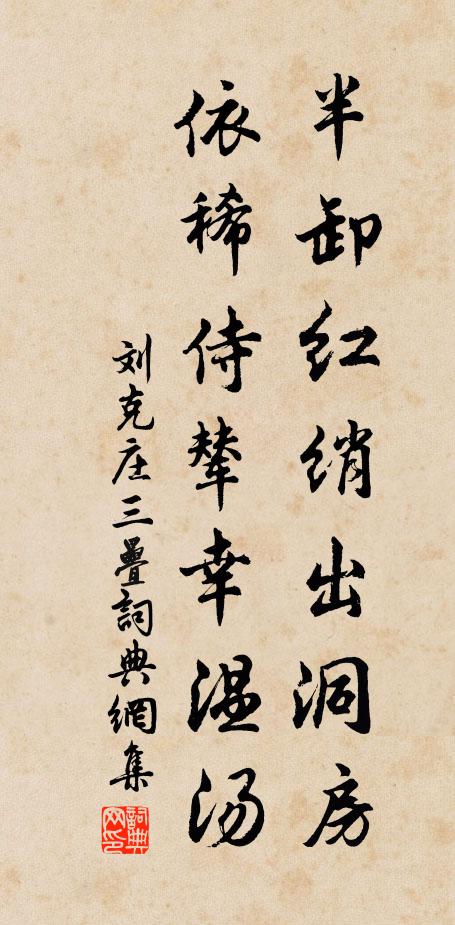 半卸红绡出洞房
依稀侍辇幸温汤
刘克庄三叠詞典網集
詞典網印